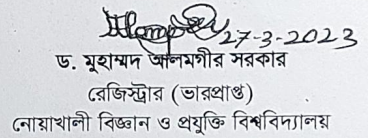 27-3-2023
ড. মুহাম্মদ আলমগীর সরকার
রেজিস্ট্রার (ভারপ্রাপ্ত)
নোয়াখালী বিজ্ঞান ও প্রযুক্তি বিশ্ববিদ্যালয়